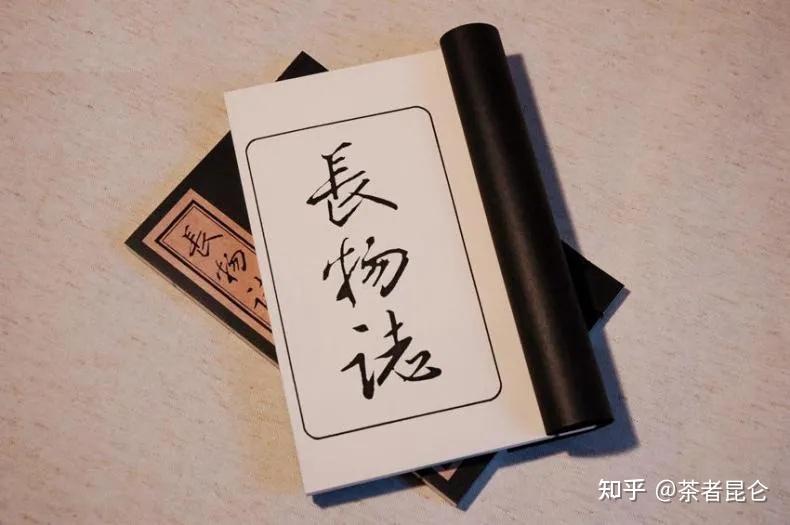 長物誌
長物
知乎 @茶者昆仑